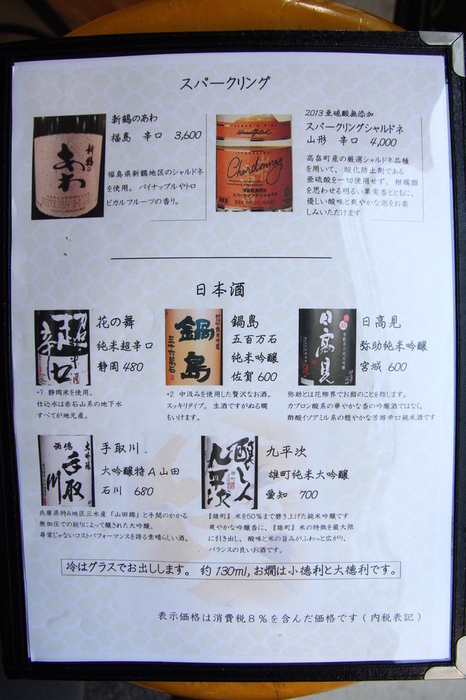 スパークリング
新鶴のあわ
福島 辛口 3,600
福島県新鶴地区のシャルドネ
を使用。パイナップルやトロ
ピカルフルーツの香り。
新鶴の
あわ
2013亜硫酸無添加
スパークリングシャルドネ
山形 辛口 4,000
高畠町産の厳選シャルドネ品種
を用いて、酸化防止剤である
亜硫酸を一切使用せず、柑橘類
を思わせる明るい果実香とともに、
優しい酸味と爽やかな泡をお楽
しみいただけます
Unfiltered
Chardonnay
日本酒
花の舞
純米超辛口
静岡 480
+7 静岡米を使用。
仕込水は赤石山系の地下水
すべてが地元産。
超
辛口
鍋島
五百万石
純米吟醸
佐賀 600
+2 中汲みを使用した贅沢なお酒。
スッキリタイプ。生酒ですがぬる燗
もいけます。
鍋島
日高見
弥助純米吟醸
宮城 600
弥助とは花柳界でお鮨のことを指します。
カプロン酸系の華やかな香の吟醸酒ではなく、
酢酸イソアミル系の穏やかな芳醇辛口純米酒です
日高見
手取川
大吟醸特A山田
石川 680
兵庫県特A地区三木産「山田錦」と手間のかかる
無加圧での絞りによって醸された大吟醸。
尋常じゃないコストパフォーマンスを誇る素晴らしい酒。
大吟醸
手取川
九平次
雄町純米大吟醸
愛知 700
『雄町』米を50%まで磨き上げた純米吟醸です
爽やかな吟醸香に、『雄町』米の特徴を最大限
に引き出し、酸味と米の旨みがふわっと広がり、
バランスの良いお酒です。
醸し人
九平次
冷はグラスでお出しします。約130ml,お燗は小徳利と大徳利です。
表示価格は消費税8%を含んだ価格です(内税表記)